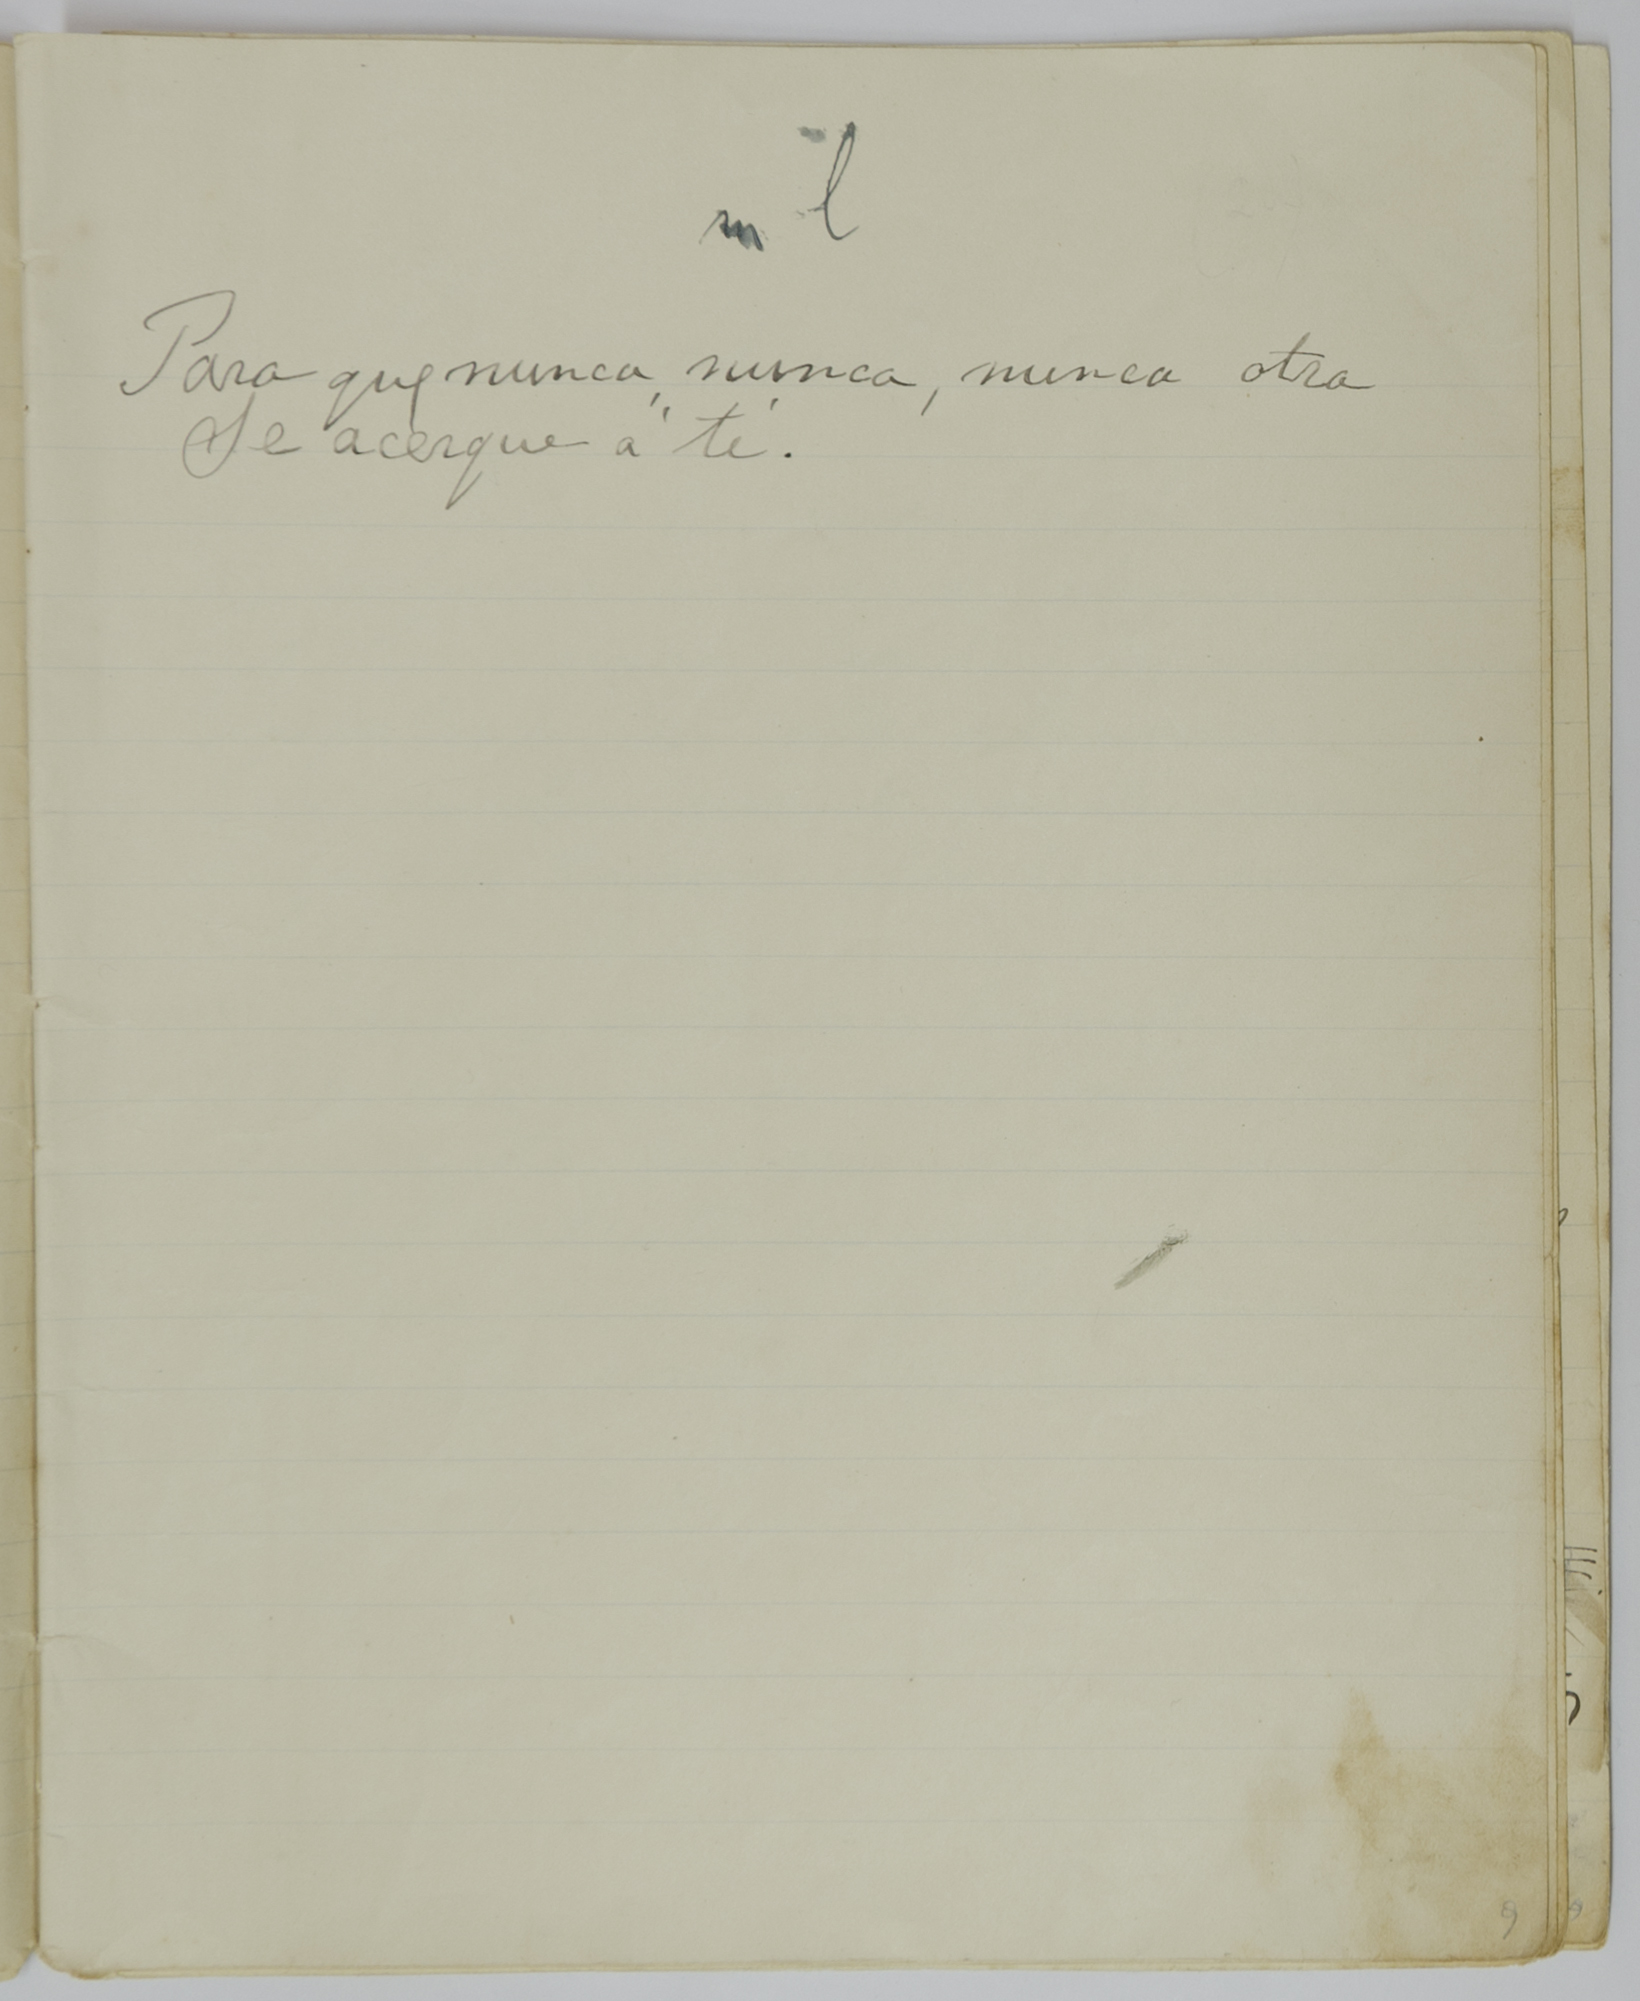 m l
Para que nunca, nunca, nunca otra
Se acerque á té.
9